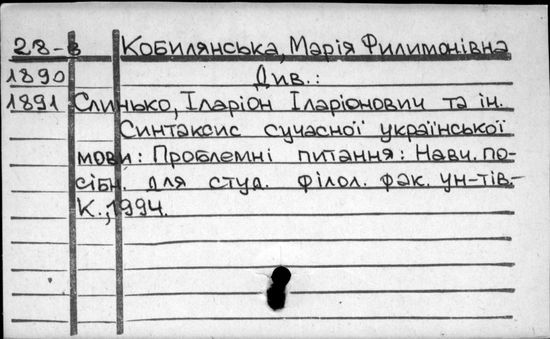 28-в Кобилянська, Марія Филимонівна
1890 Див.:
1891 Слинько, Іларіон Іларіонович та ін.
Синтаксис сучасної української
мови: Проблемні питання: Навч. по-
сібн. для студ. філол. фак. ун-тів.-
К., 1994.